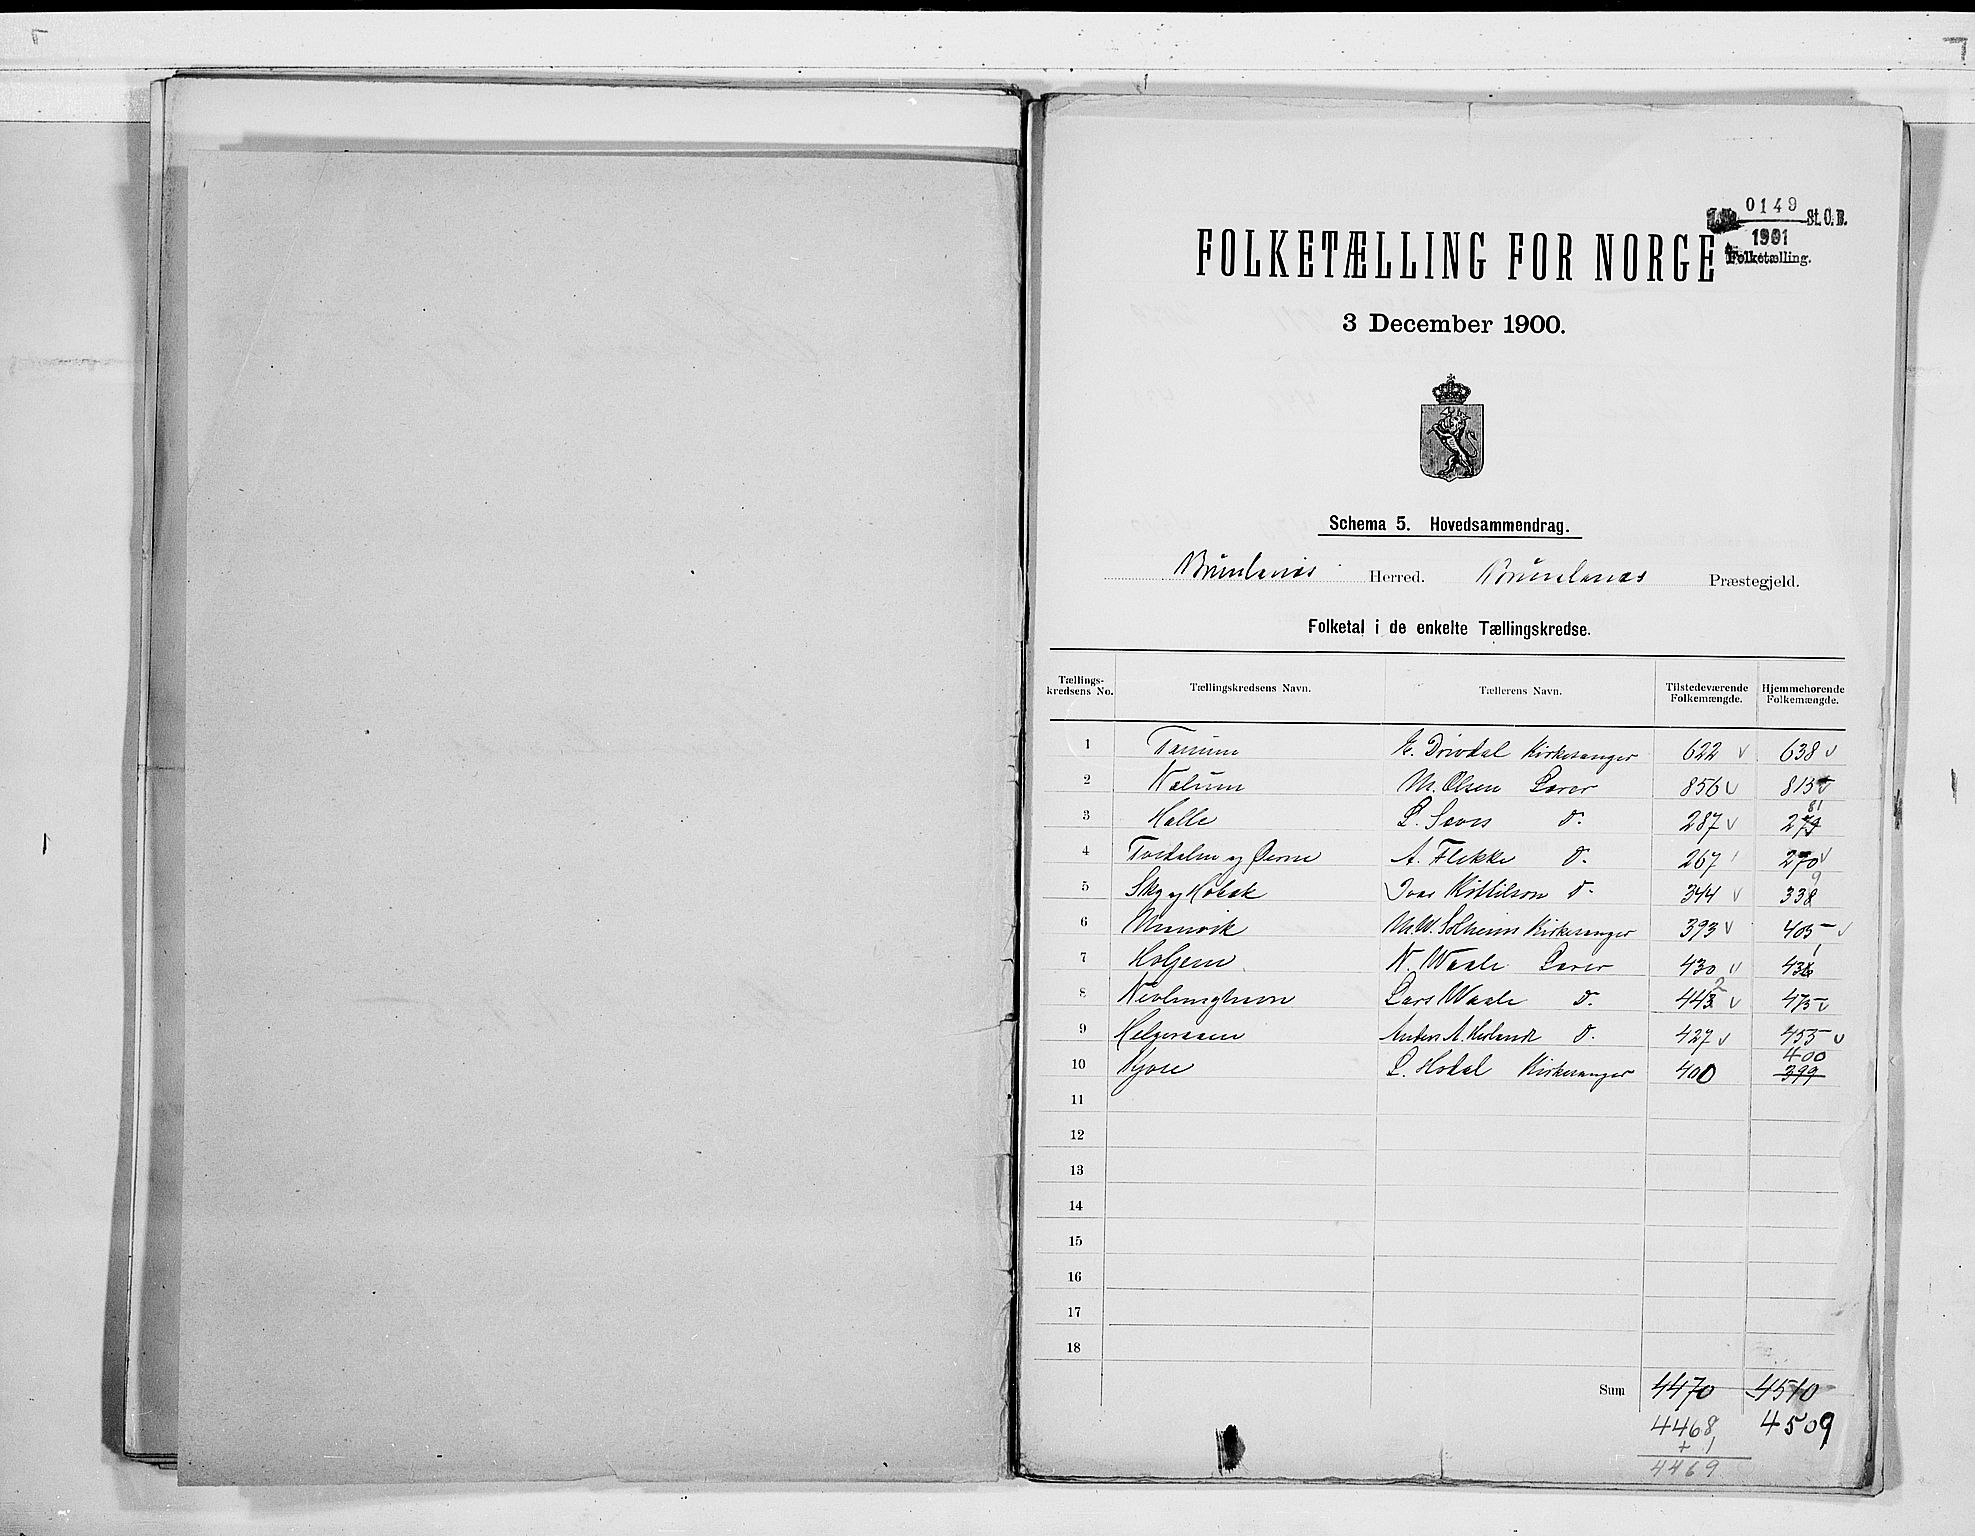 0149 St. C. B.
1901
Folketælling.
FOLKETÆLLING FOR NORGE
3 December 1900.
Schema 5. Hovedsammendrag.
Brunlanæs Herred. Brunlanæs Præstegjeld.
Folketal i de enkelte Tællingskredse.
Tællings-kredsens No. Tællingskredsens Navn. Tællerens Navn. Tilstedeværende Folkemængde. Hjemmehørende Folkemængde.
1 Tanum Drivdal Kirkesanger 622 638
2 Nalum M. Olsen Lærer 856 813
81
3 Halle L. D. 287 279
4 Tvedalen og Øerne A. Flekke D. 267 270
9
5 Sky og Hobæk Ivar Kittilson D. 344 338
6 Manvik M. W. Solheim Kirkesanger 393 405
1
7 Holjem N. Waale Lærer 430 436
2
8 Nevlunghavn Lars Waale D. 443 475
9 Helgeraaen Anders A. D. 427 455
400
10 Kjose L. Hodal Kirkesanger 400 399
11
12
13
14
15
16
17
18
Sum 4470 4510
4468 4509
+ 1
4469